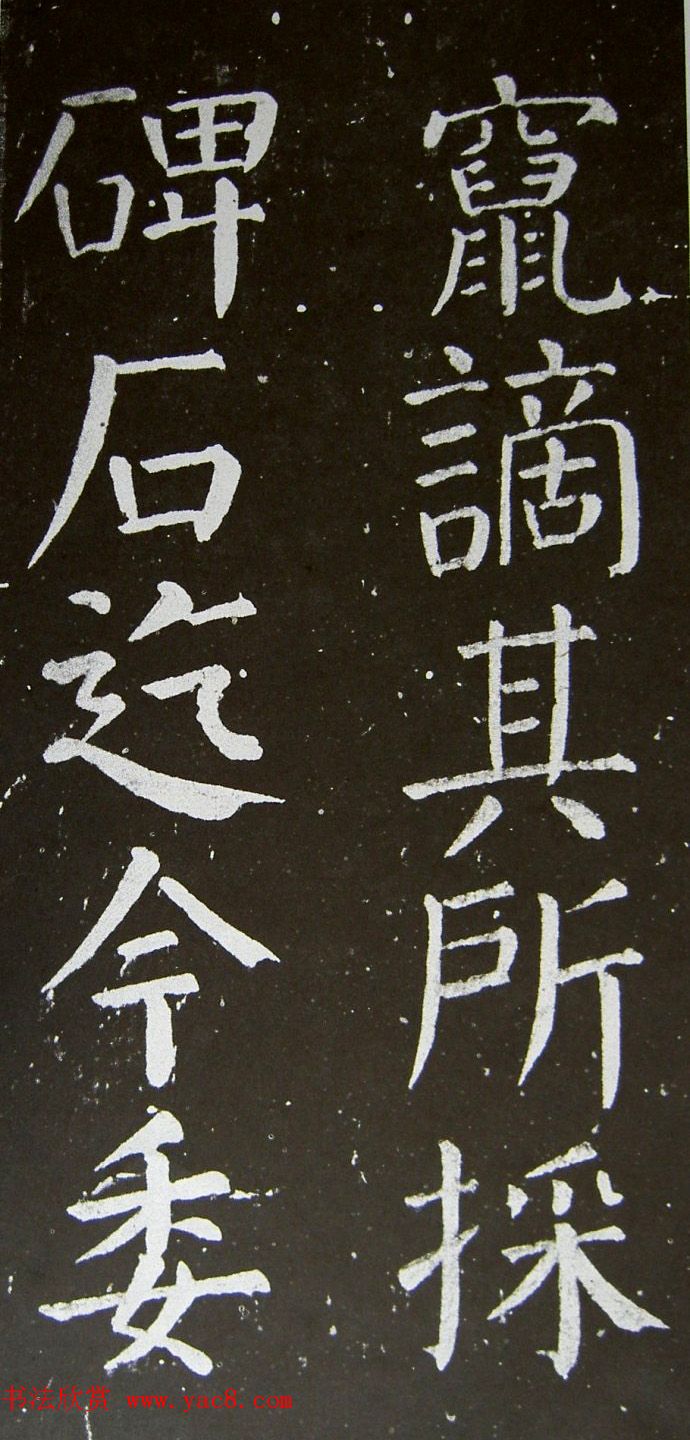 竄謫其所採
碑石迄今委
书法欣赏 www.yac8.com